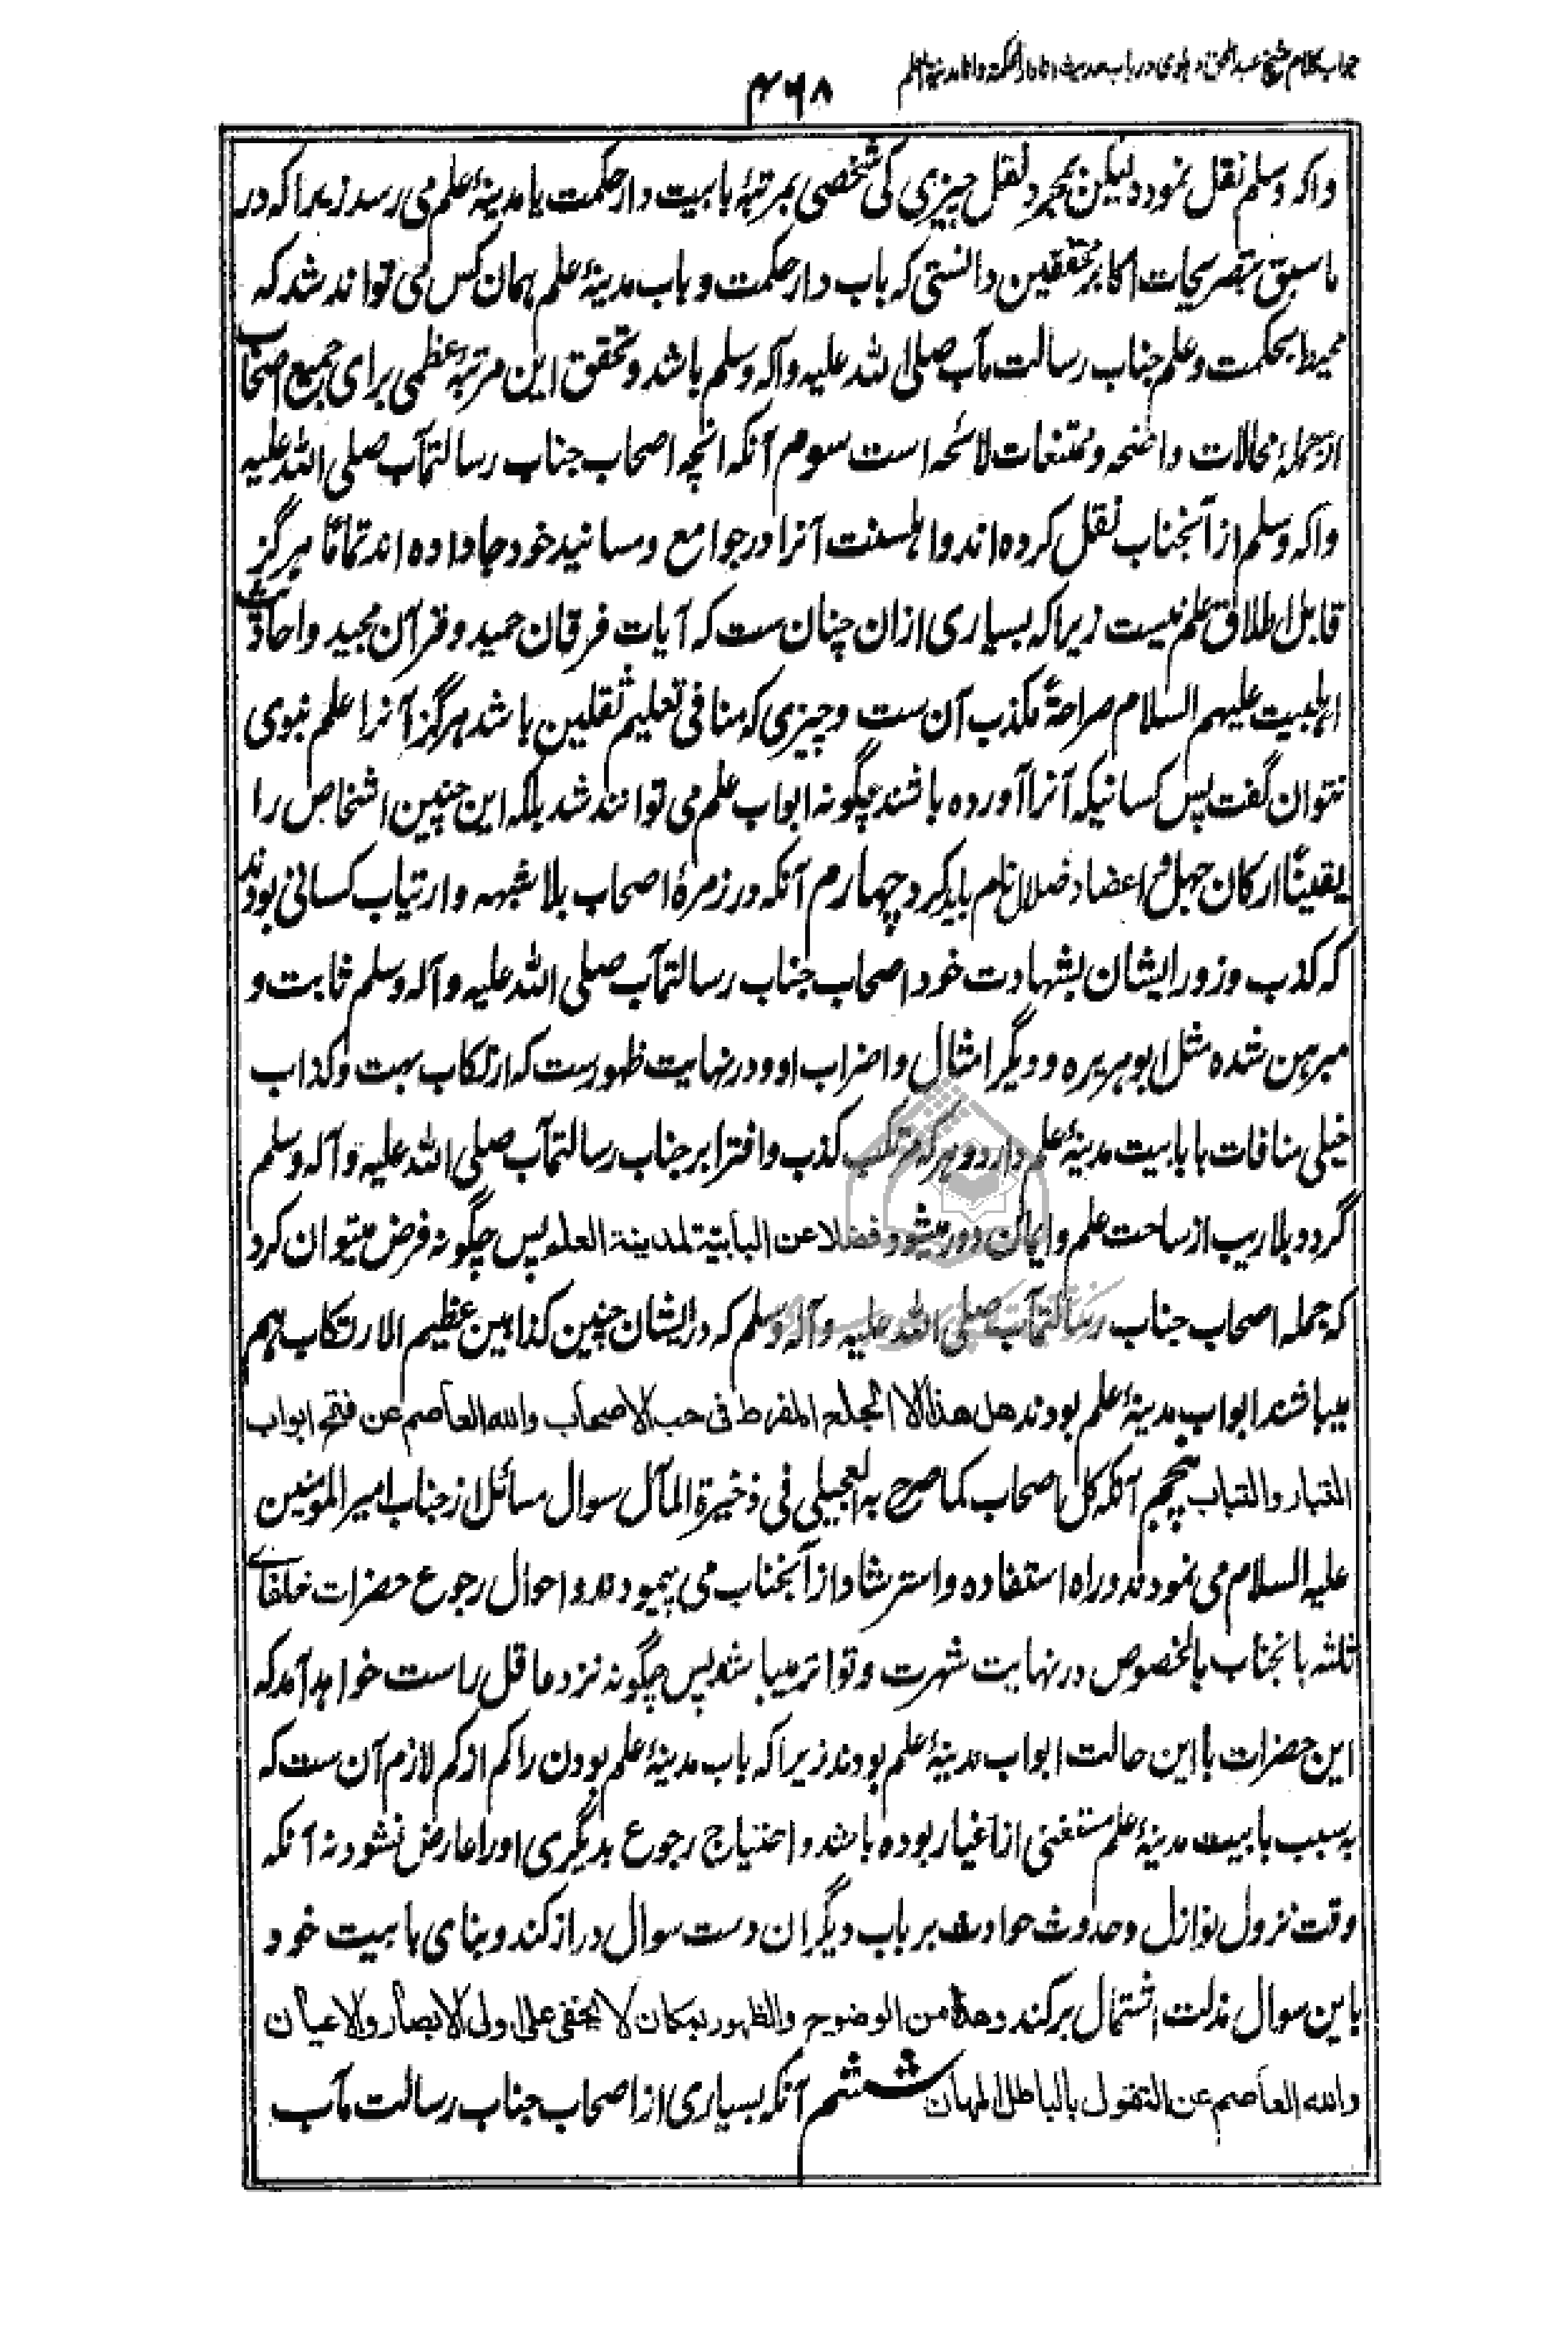 جواب کلام شیخ عبدالحق دهلوی در باب حدیث انا دار الحکمة وانا مدینة العلم
۴۶۸
واله وسلم نقل نموده لیکن بمجرد نقل چیزی کی شخصی بمرتبهٔ بابیت دار حکمت یا مدینهٔ علم می رسد زیرا که در
ما سبق بتصریحات اکابر محققین دانستی که باب دار حکمت و باب مدینهٔ علم همان کس می تواند شد که
محیط بحکمت و علم جناب رسالت مآب صلی الله علیه واله وسلم باشد و تحقق این مرتبهٔ عظمی برای جمیع اصحاب
از جملهٔ محالات واضحه و ممتنعات لائحه است سوم آنکه انچه اصحاب جناب رسالتمآب صلی الله علیه
واله وسلم از آنجناب نقل کرده اند و اهلسنت آنرا در جوامع و مسانید خود جا داده اند تماماً هرگز
قابل اطلاق علم نیست زیرا که بسیاری ازان چنان ست که آیات فرقان حمید و قرآن مجید و احادیث
اهلبیت علیهم السلام صراحةً مکذب آن ست و چیزی که منافی تعلیم ثقلین باشد هرگز آنرا علم نبوی
نتوان گفت پس کسانیکه آنرا آورده باشند چگونه ابواب علم می توانند شد بلکه این چنین اشخاص را
یقیناً ارکان جهل و اعضاد ضلال نام باید کرد چهارم آنکه در زمرهٔ اصحاب بلا شبهه و ارتیاب کسانی بودند
که کذب و زور ایشان بشهادت خود اصحاب جناب رسالتمآب صلی الله علیه وآله وسلم ثابت و
مبرهن شده مثل ابو هریره و دیگر امثال و اضراب او و در نهایت ظهورست که ارتکاب بهت و کذاب
خیلی منافات با بابیت مدینهٔ علم دارد و هر که مرتکب کذب و افترا بر جناب رسالتمآب صلی الله علیه وآله وسلم
گردد بلا ریب از ساحت علم و ایمان دور میشود فضلا عن البابیة لمدینة العلم پس چگونه فرض میتوان کرد
که جمله اصحاب جناب رسالتمآب صلی الله علیه وآله وسلم که در ایشان چنین کذابین عظیم الارتکاب هم
میباشند ابواب مدینهٔ علم بودند هل هذا الا المفرط فی حب الاصحاب والله العاصم عن فتح ابواب
التبار والتباب پنجم آنکه کل اصحاب کما صرح به العجیلی فی ذخیرة المآل سوال مسائل از جناب امیر المومنین
علیه السلام می نمودند و راه استفاده و استرشاد از آنجناب می پیمودند و احوال رجوع حضرات خلفای
ثلثه بآنجناب بالخصوص در نهایت شهرت و تواتر میباشد پس چگونه نزد عاقل راست خواهد آمد که
این حضرات با این حالت ابواب مدینهٔ علم بودند زیرا که باب مدینهٔ علم بودن را کم از کم لازم آن ست که
به سبب بابیت مدینهٔ علم مستغنی از اغیار بوده باشد و احتیاج رجوع بدیگری او را عارض نشود نه آنکه
وقت نزول نوازل و حدوث حوادث بر باب دیگران دست سوال دراز کند و بنای بابیت خود
باین سوال مذلت اشتمال برکند وهذا من الوضوح والظهور بمکان لا یخفی علی اولی الابصار والاعیان
والله العاصم عن التفول بالباطل المهان ششم آنکه بسیاری از اصحاب جناب رسالت مآب